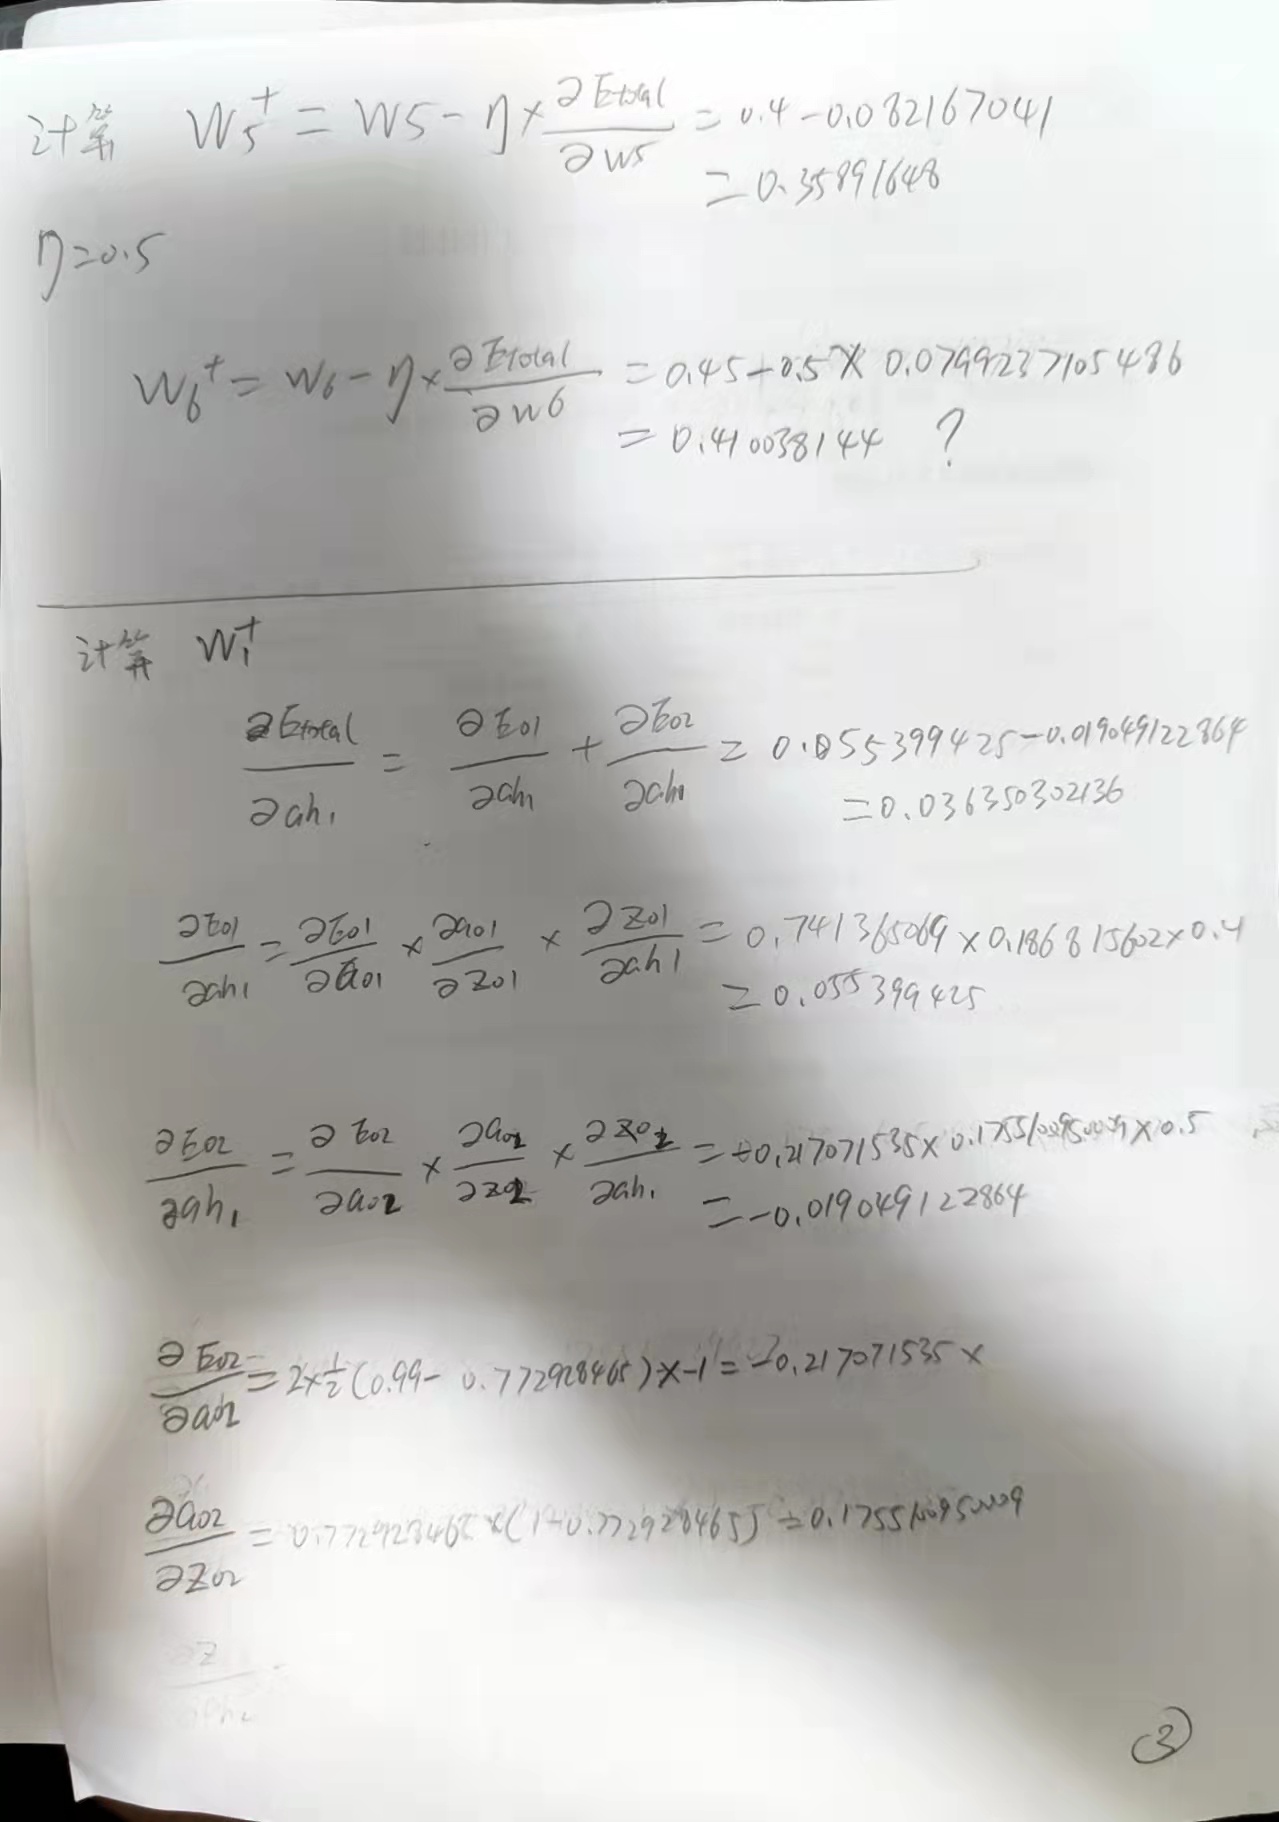 计算 W₅⁺ = W5 - η × ∂Etotal/∂W5 = 0.4 - 0.082167041
= 0.35891648
η = 0.5
W₆⁺ = W6 - η × ∂Etotal/∂W6 = 0.45 - 0.5 × 0.0799237105486
= 0.410038144 ?
计算 W₁⁺
∂Etotal/∂ah₁ = ∂Eo1/∂ah₁ + ∂Eo2/∂ah₁ = 0.055399425 - 0.019049122864
= 0.036350302136
∂Eo1/∂ah₁ = ∂Eo1/∂ao1 × ∂ao1/∂zo1 × ∂zo1/∂ah1 = 0.741365069 × 0.186815602 × 0.4
= 0.055399425
∂Eo2/∂ah₁ = ∂Eo2/∂ao2 × ∂ao2/∂zo2 × ∂zo2/∂ah₁ = -0.217071535 × × 0.5
= -0.019049122864
∂Eo2/∂ao2 = 2×½(0.99 - 0.772928465) × -1 = -0.217071535 ×
∂ao2/∂zo2 = 0.772928465 × (1 - 0.772928465) =
③